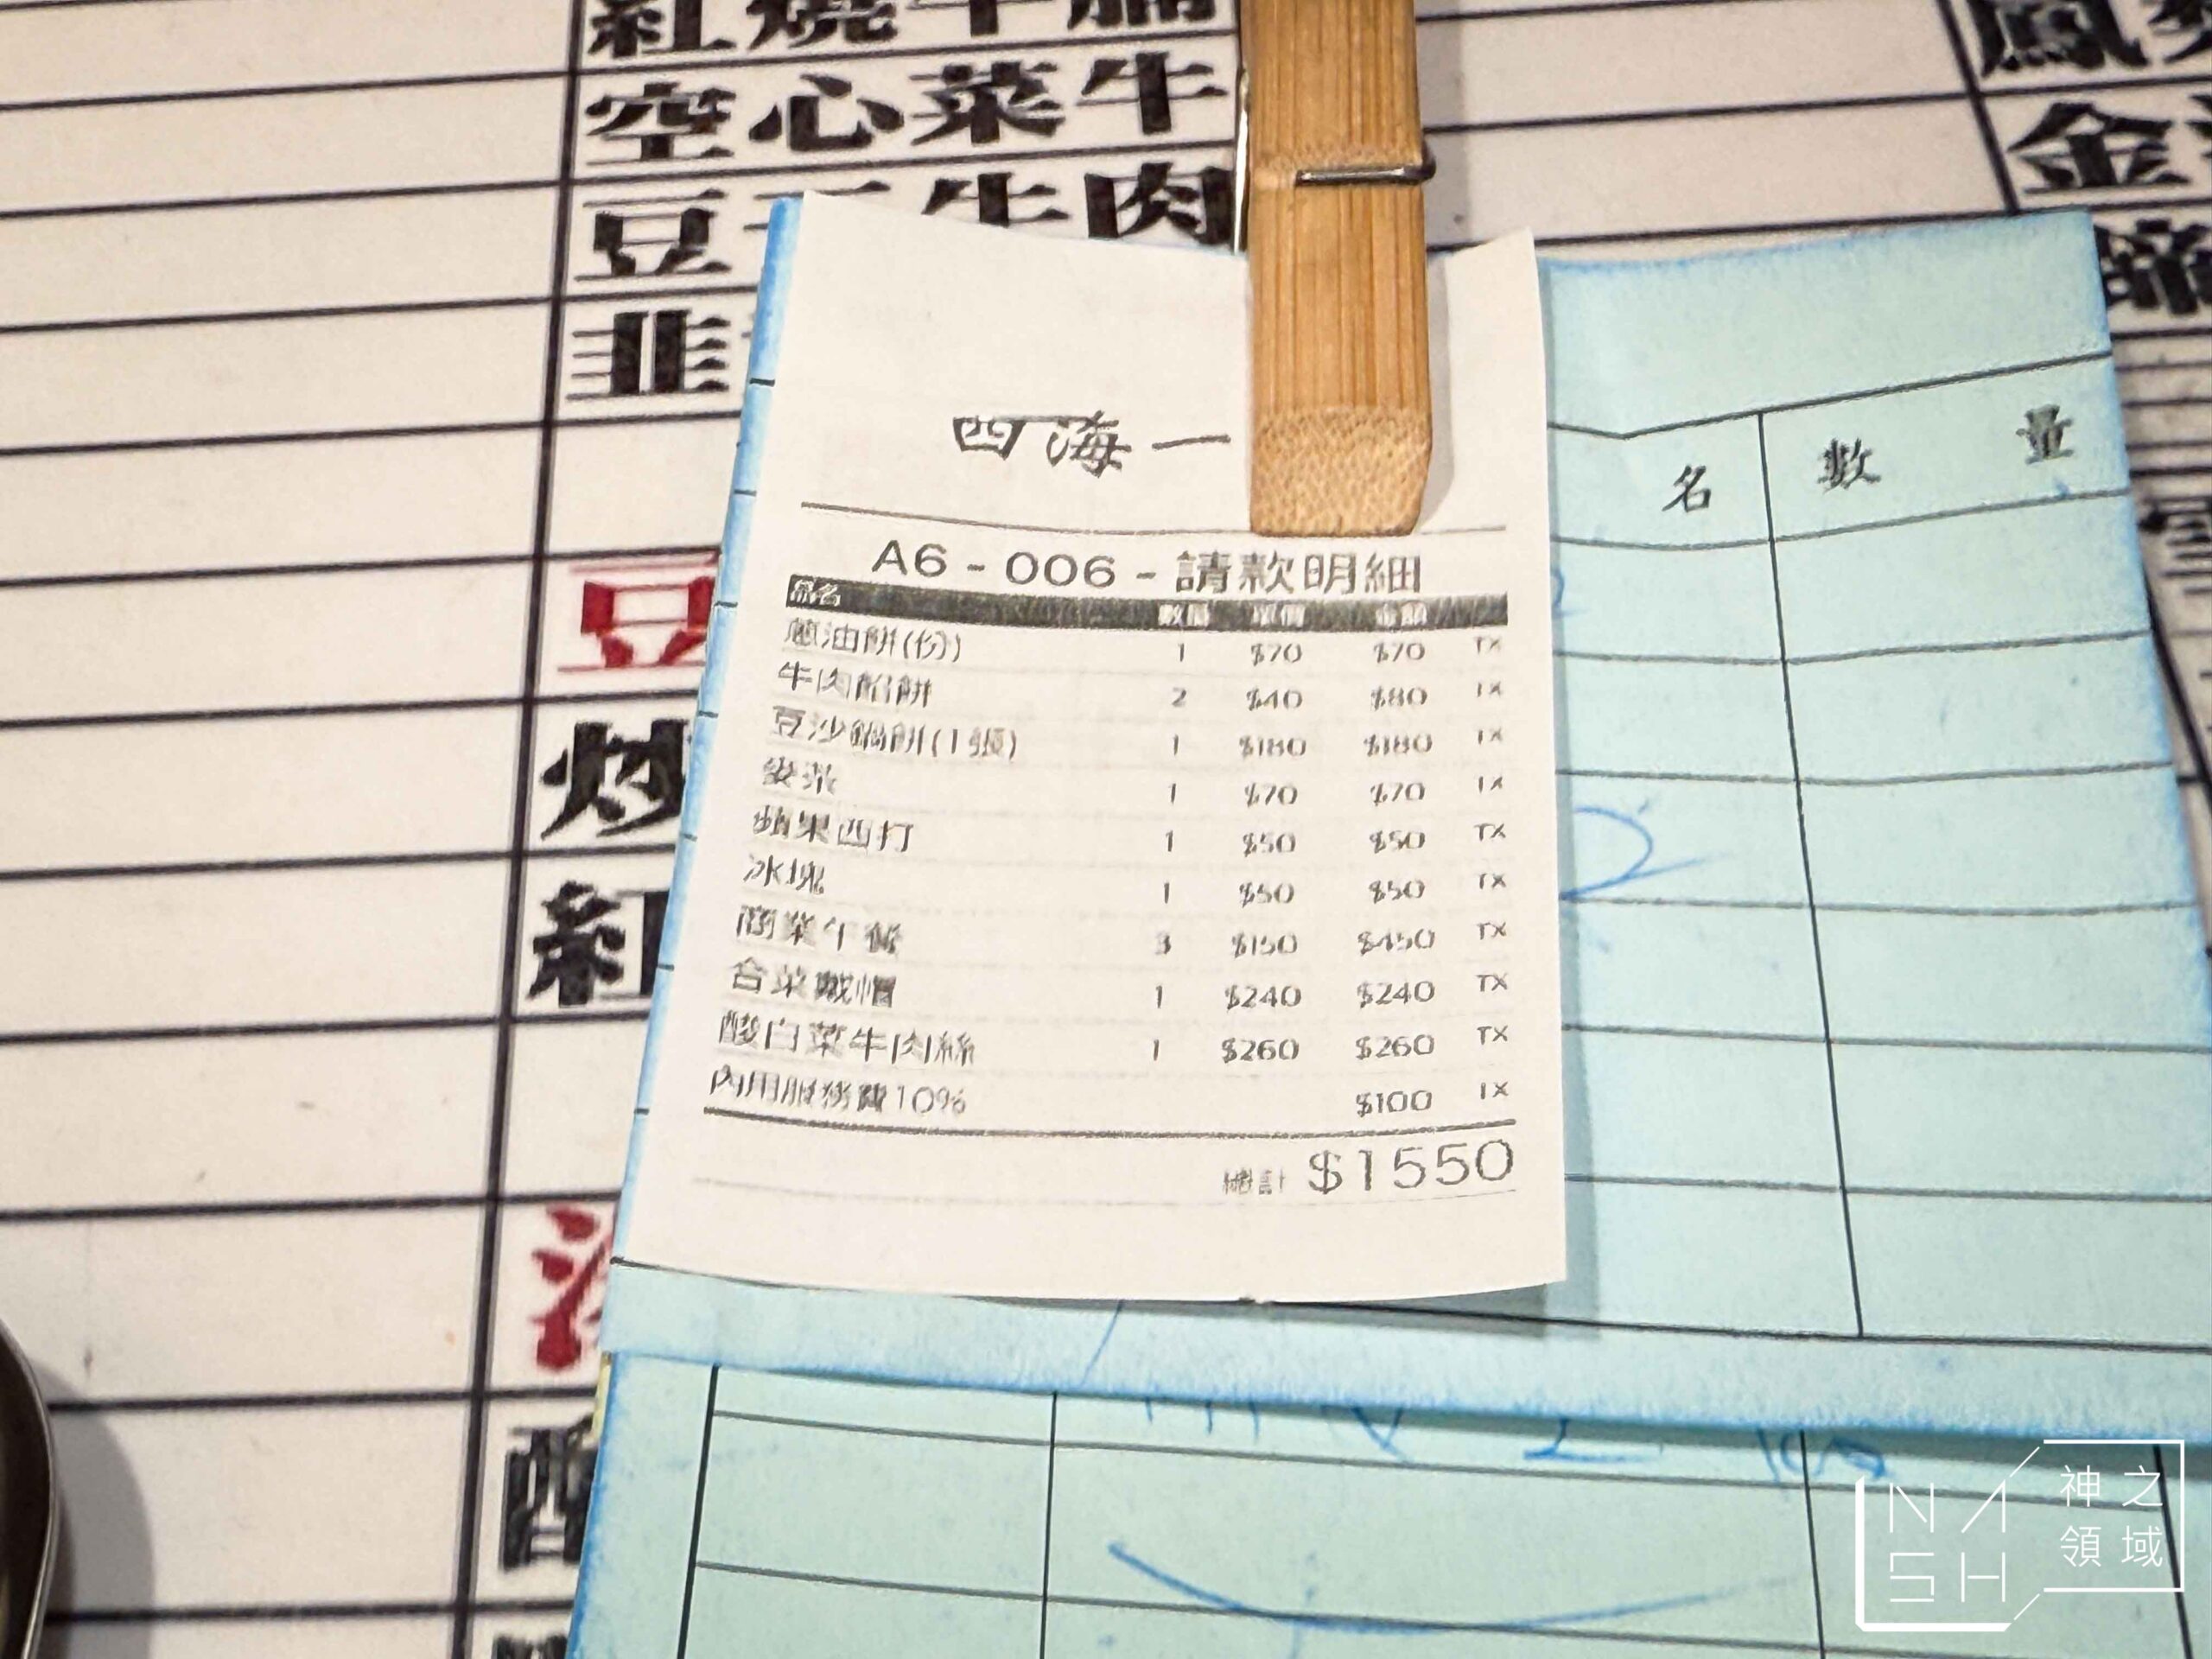 紅燒牛腩
空心菜牛
豆干牛肉
韭
豆
炒
紅
酸
金
四海一
A6 - 006 - 請款明細
品名 數量 單價 金額
蔥油餅(份) 1 $70 $70 TX
牛肉餡餅 2 $40 $80 TX
豆沙鍋餅(1張) 1 $180 $180 TX
麥茶 1 $70 $70 TX
蘋果西打 1 $50 $50 TX
冰塊 1 $50 $50 TX
商業午餐 3 $150 $450 TX
合菜戴帽 1 $240 $240 TX
酸白菜牛肉絲 1 $260 $260 TX
內用服務費10% $100 TX
總計 $1550
名 數量
2
NASH 神之領域